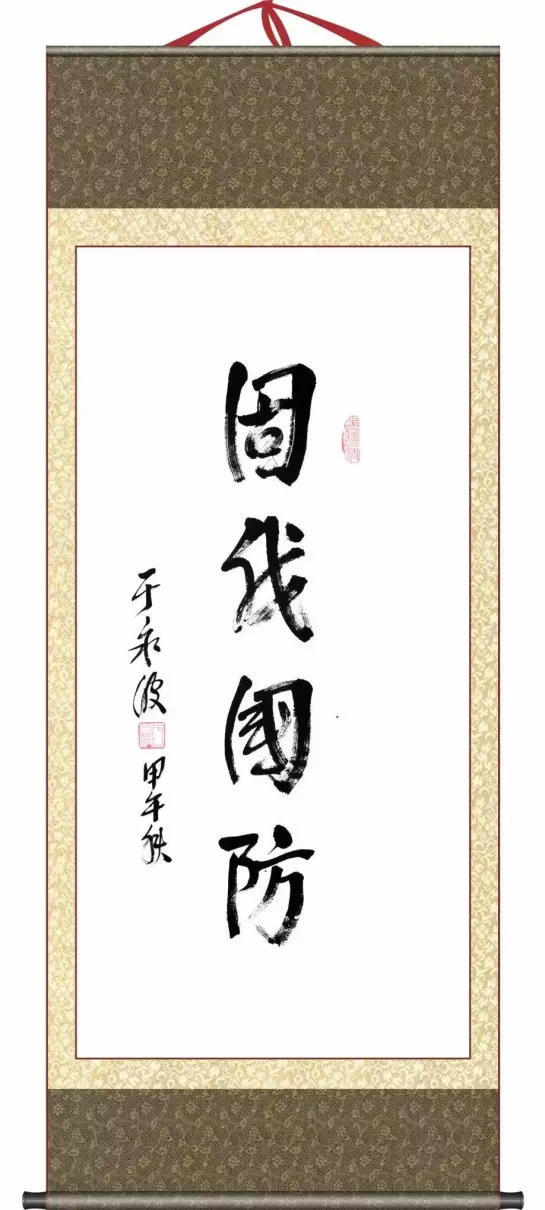 固我國防
于永波
甲午秋